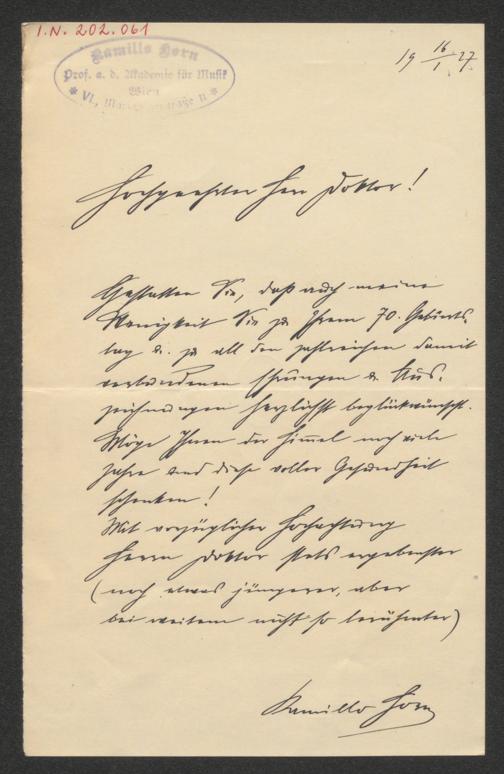 I.N. 202.061
Kamillo Horn
Prof. a. d. Akademie für Musik
Wien
19 16/1. 27.
Hochgeehrter Herr Doktor!
Gestatten Sie, daß auch meine
Wenigkeit Sie zu Ihrem 70. Geburts-
tag u. zu all den zahlreichen damit
verbundenen Ehrungen u. Aus-
zeichnungen herzlichst beglückwünscht.
Möge Ihnen der Himmel noch viele
Jahre und diese voller Gesundheit
schenken!
Mit vorzüglicher Hochachtung
Herrn Doktor stets ergebenster
(noch etwas jüngerer, aber
bei weitem nicht so berühmter)
Kamillo Horn